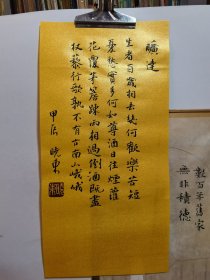 曠達
生者百歲相去幾何歡樂苦短
憂愁實多何如尊酒日往煙蘿
花覆茅簷疎雨相過倒酒既盡
杖藜行歌孰不有古南山峨峨
甲辰 曉東
數百年舊家
無非積德